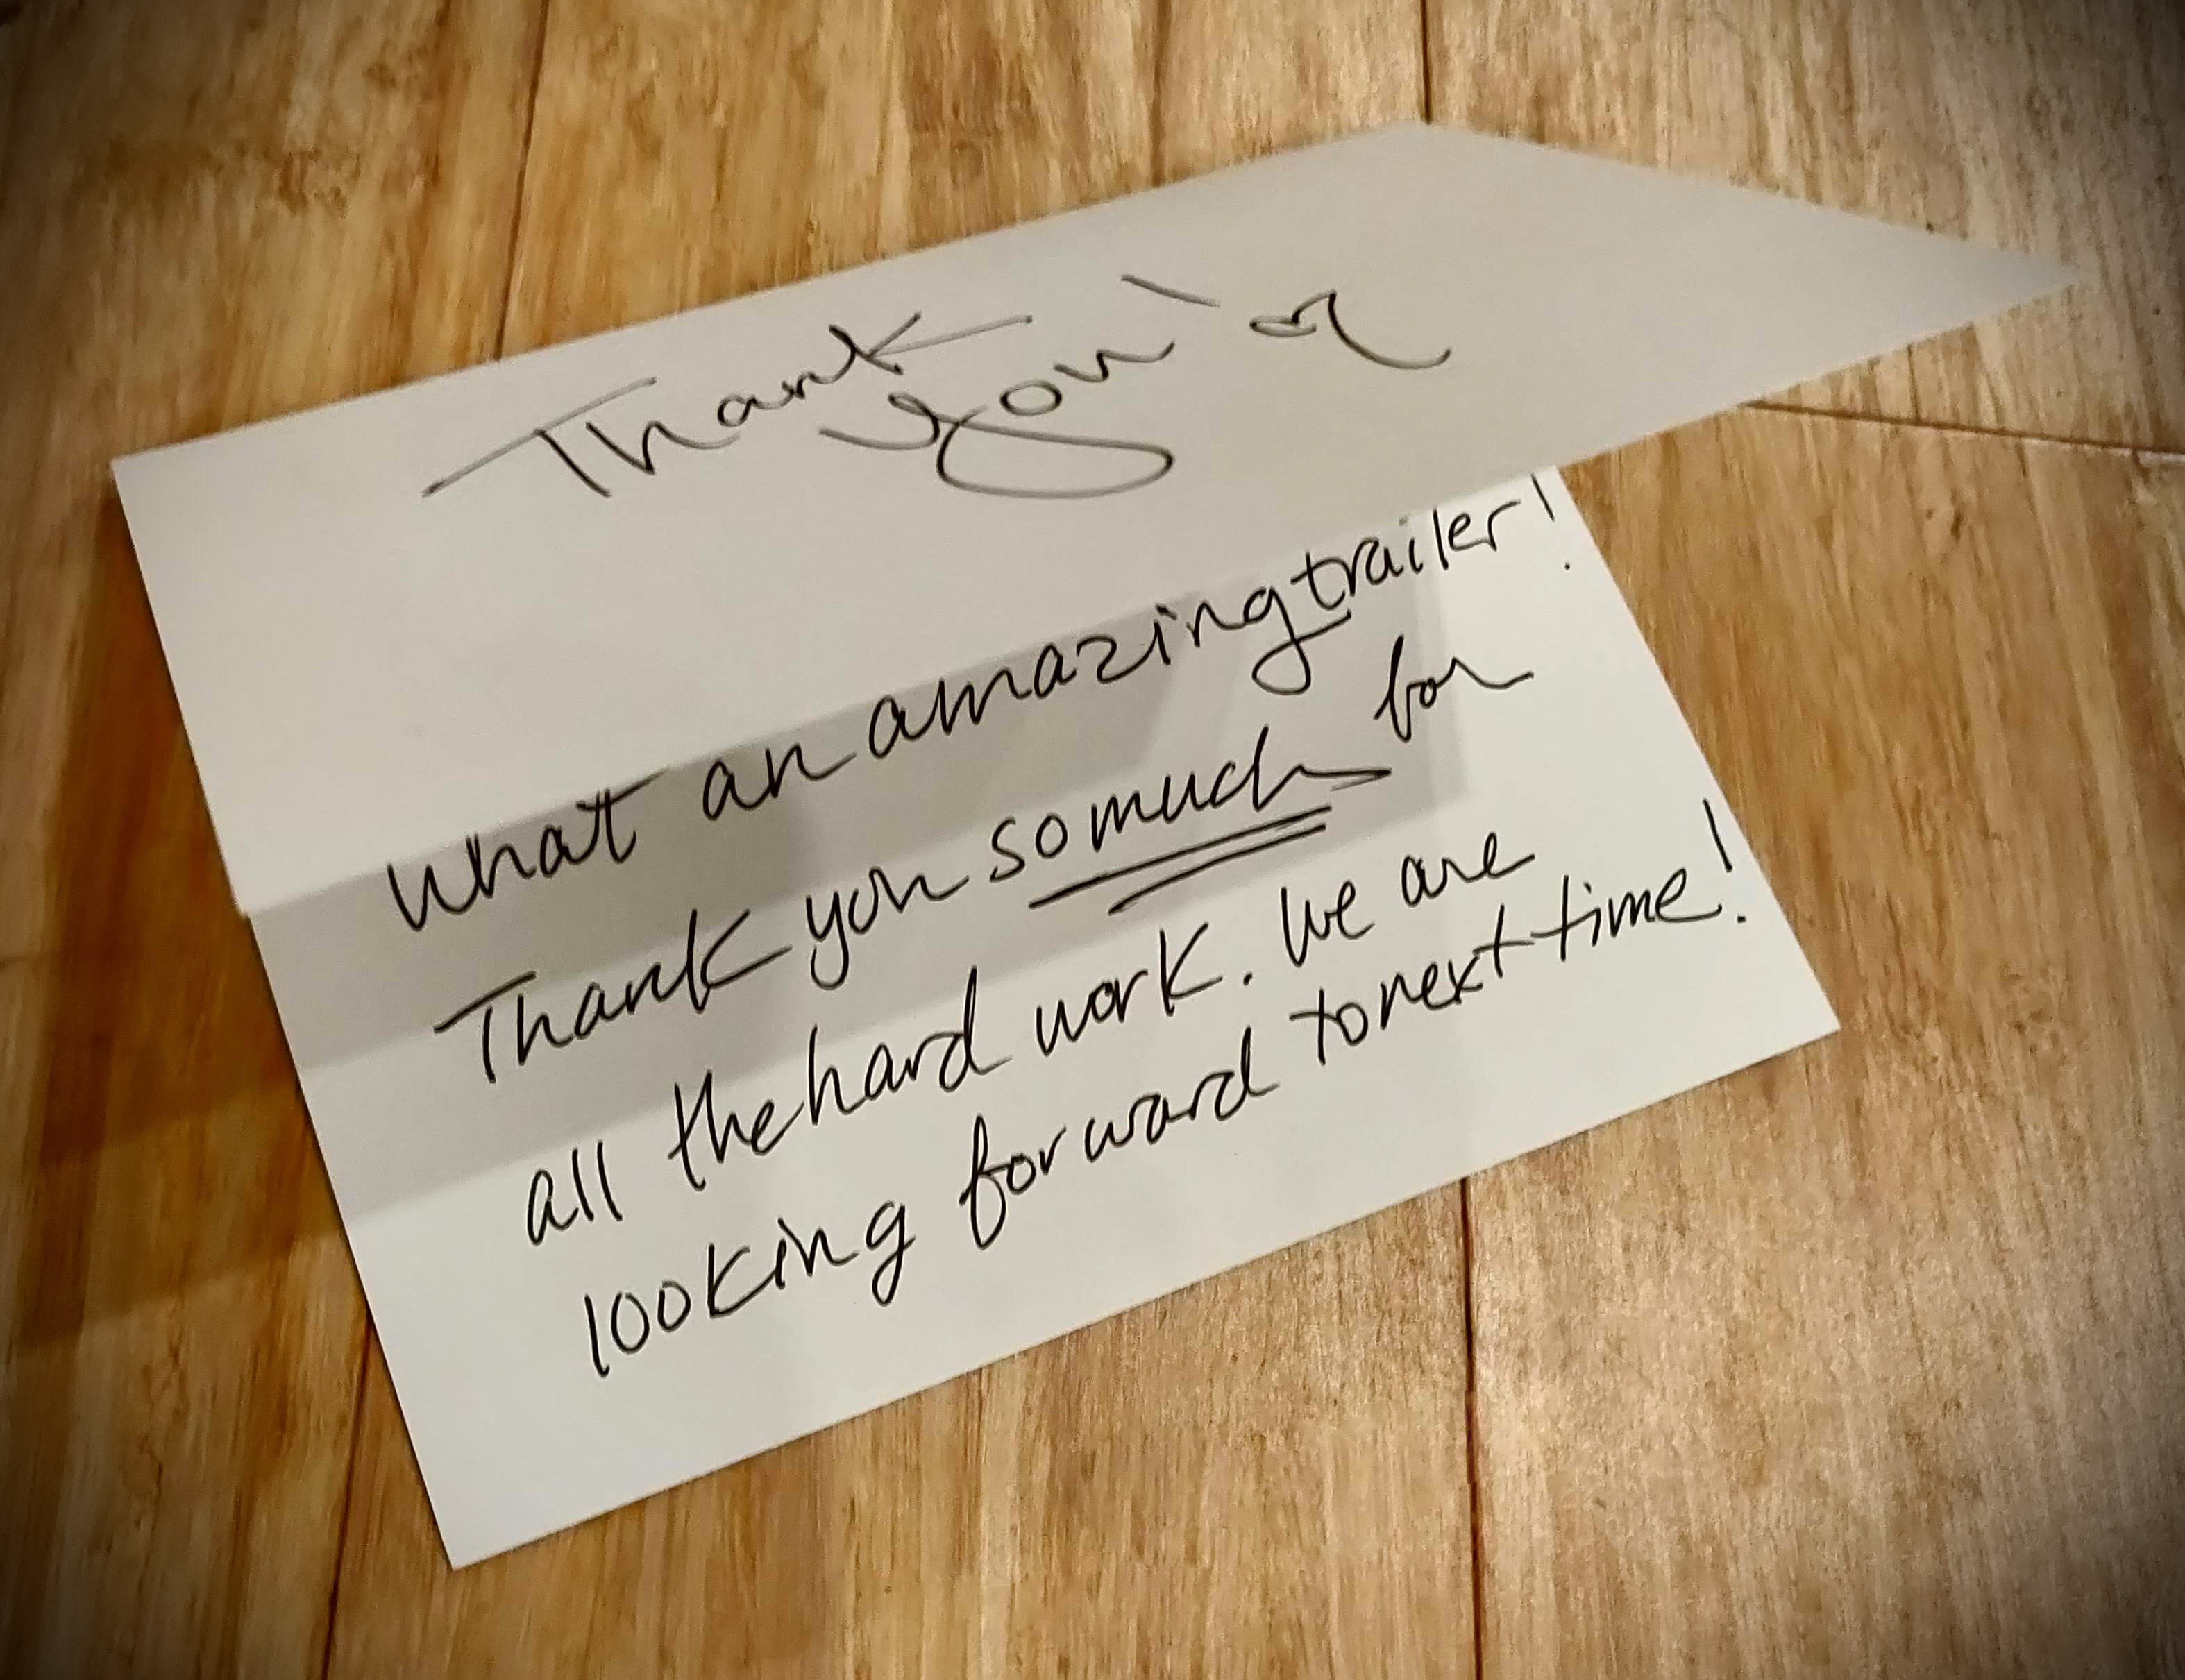 Thank
you!
What an amazing trailer!
Thank you so much for
all the hard work. We are
looking forward to next time!